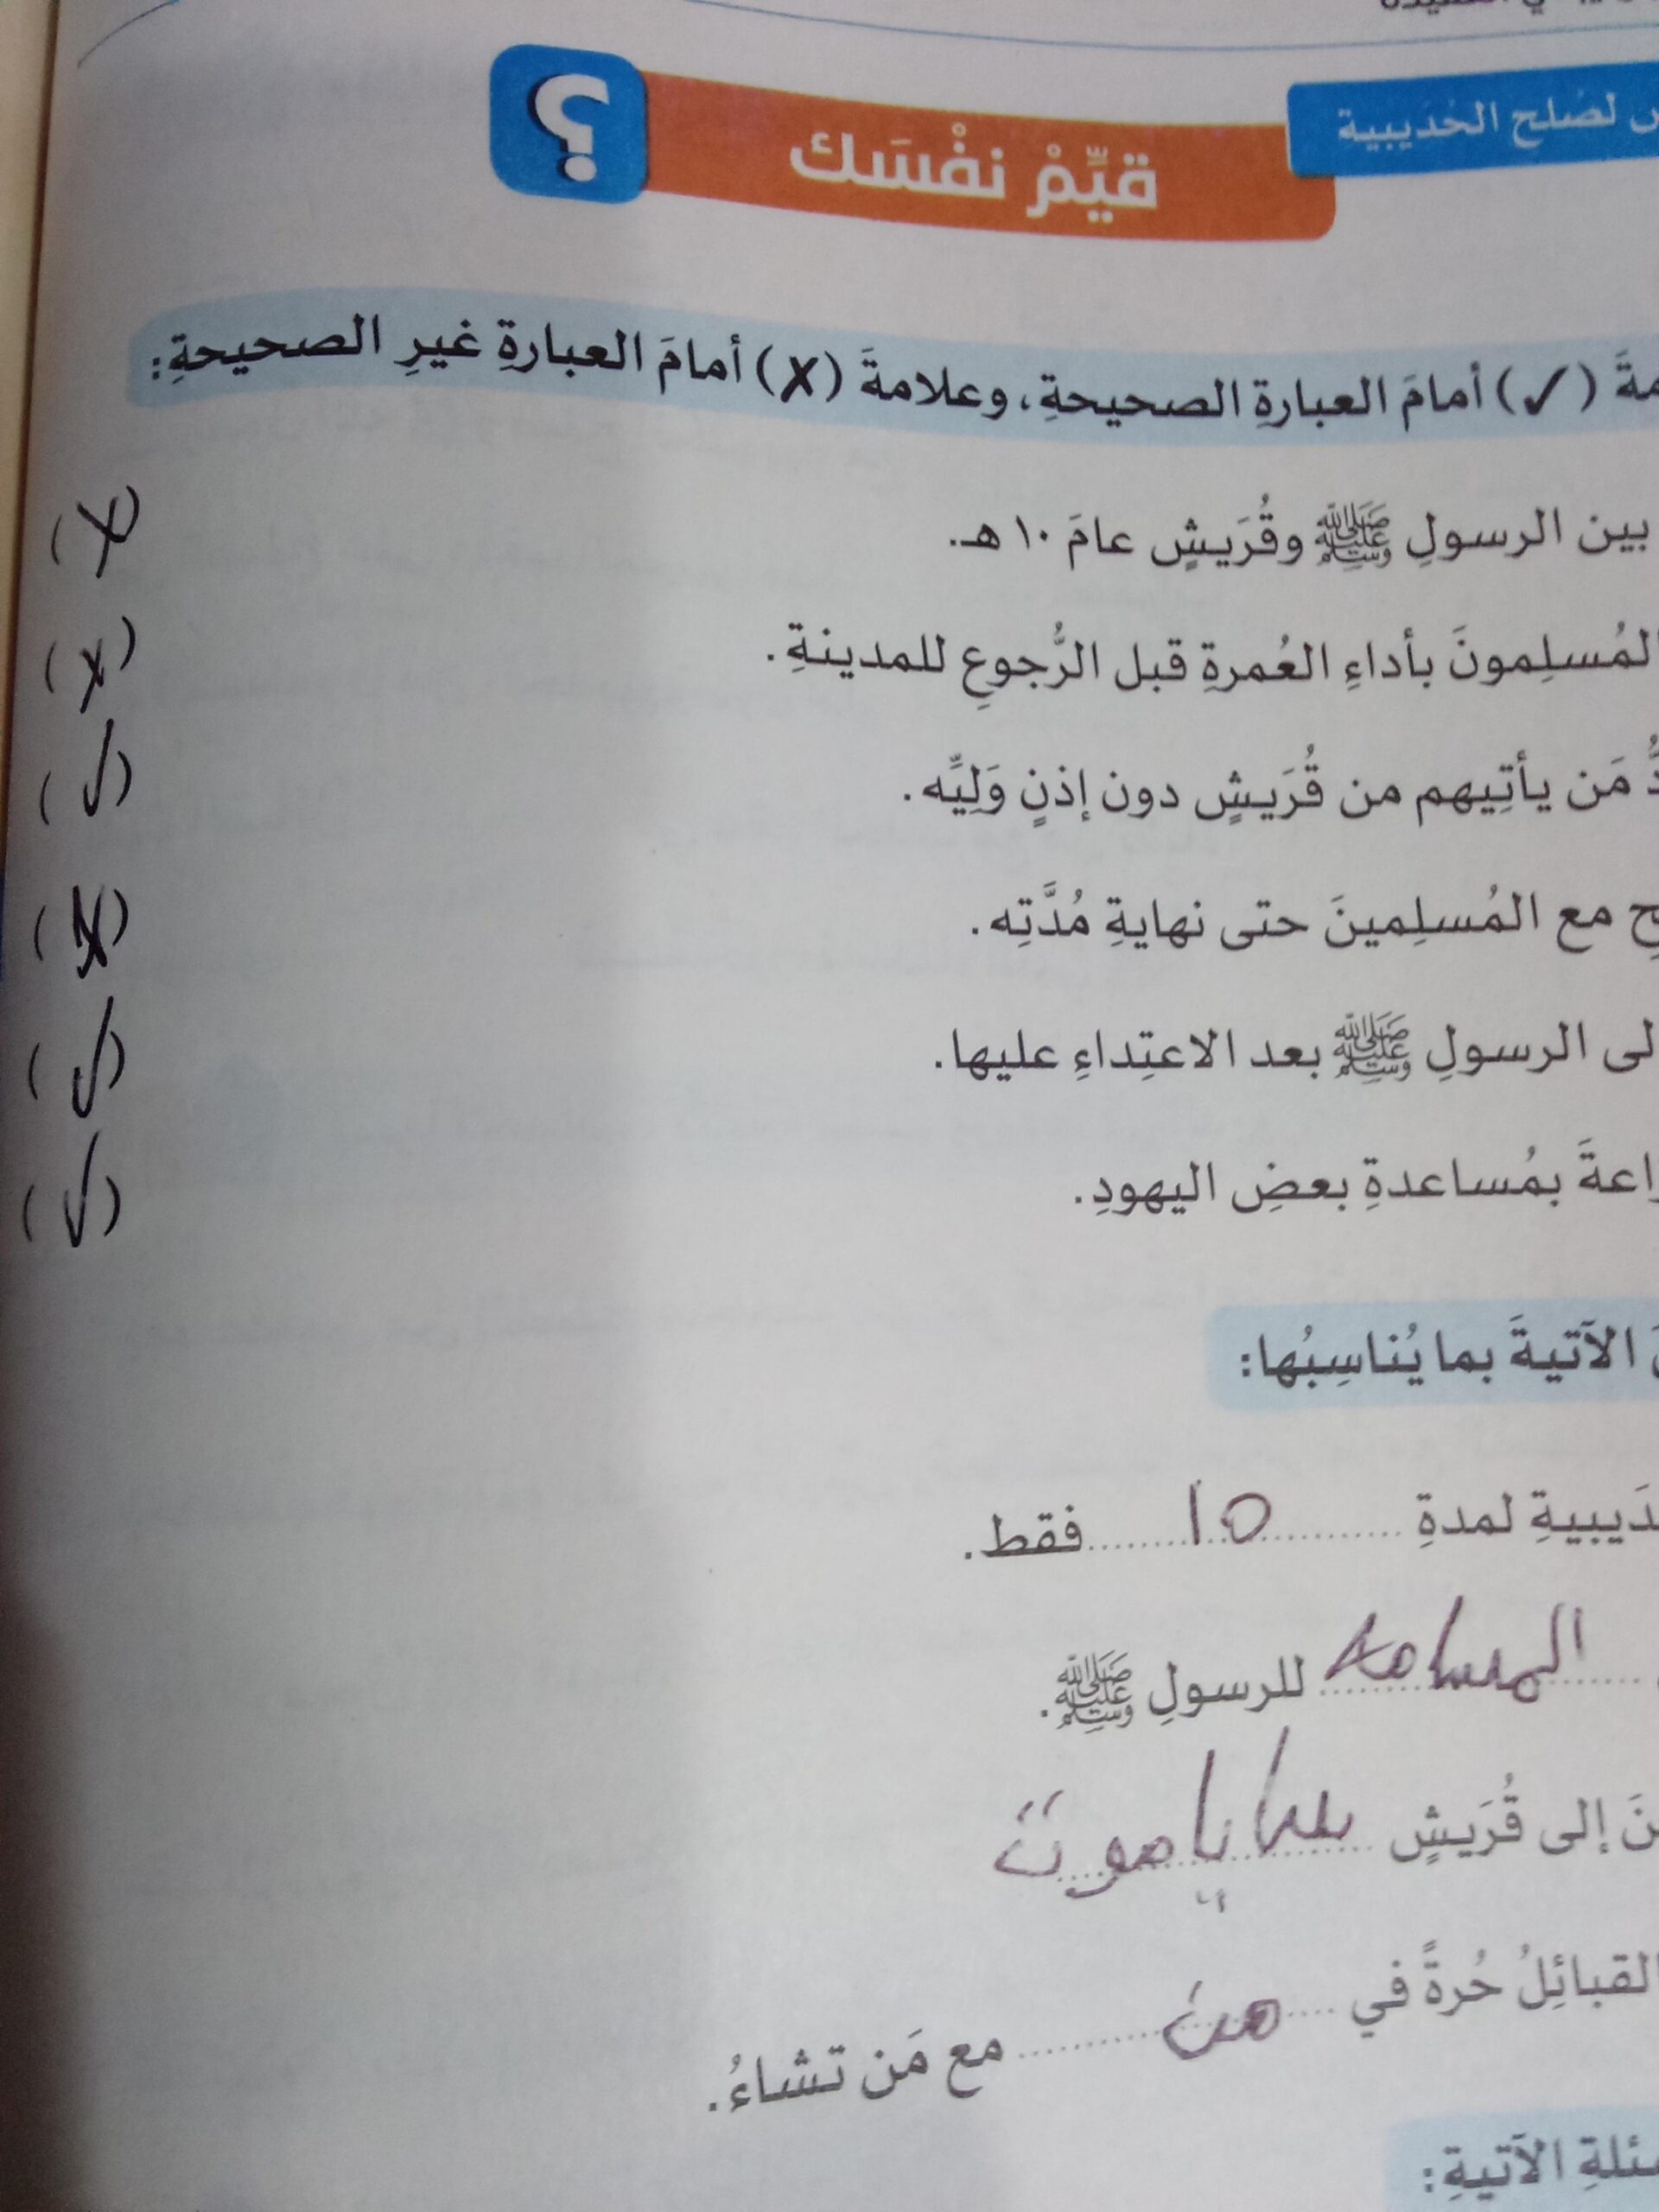 لصُلح الحُديبية
قيِّمْ نفْسَك
؟
(✓) أمامَ العبارةِ الصحيحةِ، وعلامةَ (✗) أمامَ العبارةِ غيرِ الصحيحةِ:
بين الرسولِ ﷺ وقُرَيشٍ عامَ ١٠ هـ. (✗)
المُسلِمونَ بأداءِ العُمرةِ قبل الرُّجوعِ للمدينةِ. (✗)
مَن يأتِيهم من قُرَيشٍ دون إذنٍ وَلِيِّه. (✓)
مع المُسلِمينَ حتى نهايةِ مُدَّتِه. (✗)
الرسولِ ﷺ بعد الاعتِداءِ عليها. (✓)
بمُساعدةِ بعضِ اليهودِ. (✓)
الآتيةَ بما يُناسِبُها:
لمدةِ ..... ١٥ ..... فقط.
للرسولِ ﷺ.
إلى قُرَيشٍ
القبائِلُ حُرةً في ..... مع مَن تشاءُ.
الآتيةِ: